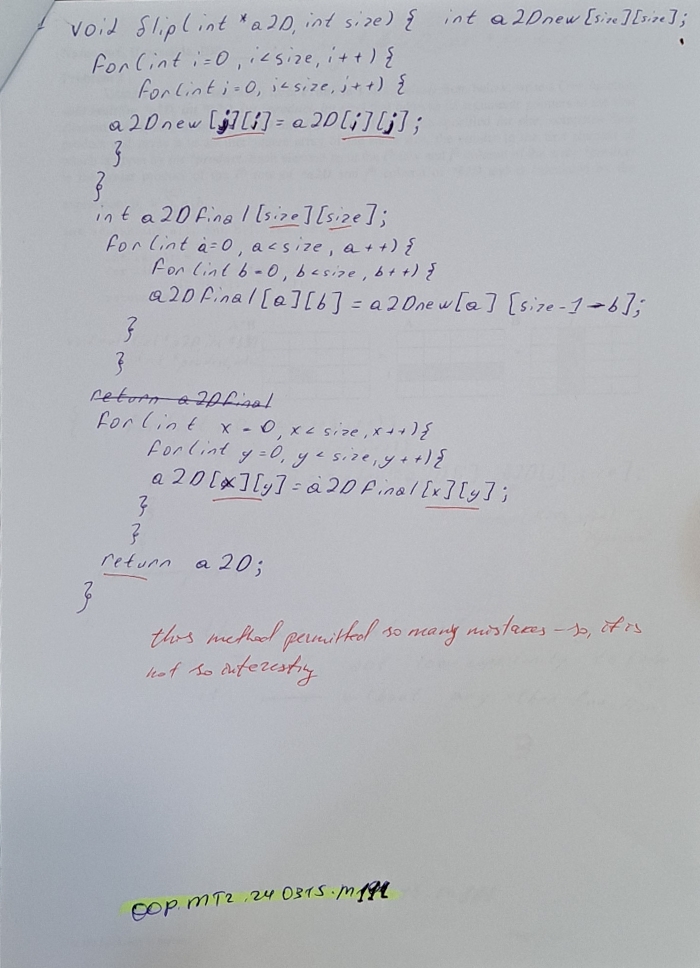 void flip(int *a2D, int size) { int a2Dnew[size][size];
for(int i=0, i<size, i++) {
for(int j=0, j<size, j++) {
a2Dnew[j][i] = a2D[i][j];
}
}
int a2Dfinal[size][size];
for(int a=0, a<size, a++) {
for(int b=0, b<size, b++) {
a2Dfinal[a][b] = a2Dnew[a][size-1-b];
}
}
return a2Dfinal
for(int x=0, x<size, x++) {
for(int y=0, y<size, y++) {
a2D[x][y] = a2Dfinal[x][y];
}
}
return a2D;
}
this method permitted so many mistakes – so, it is
not so interesting
OOP.MT2.240315.M191